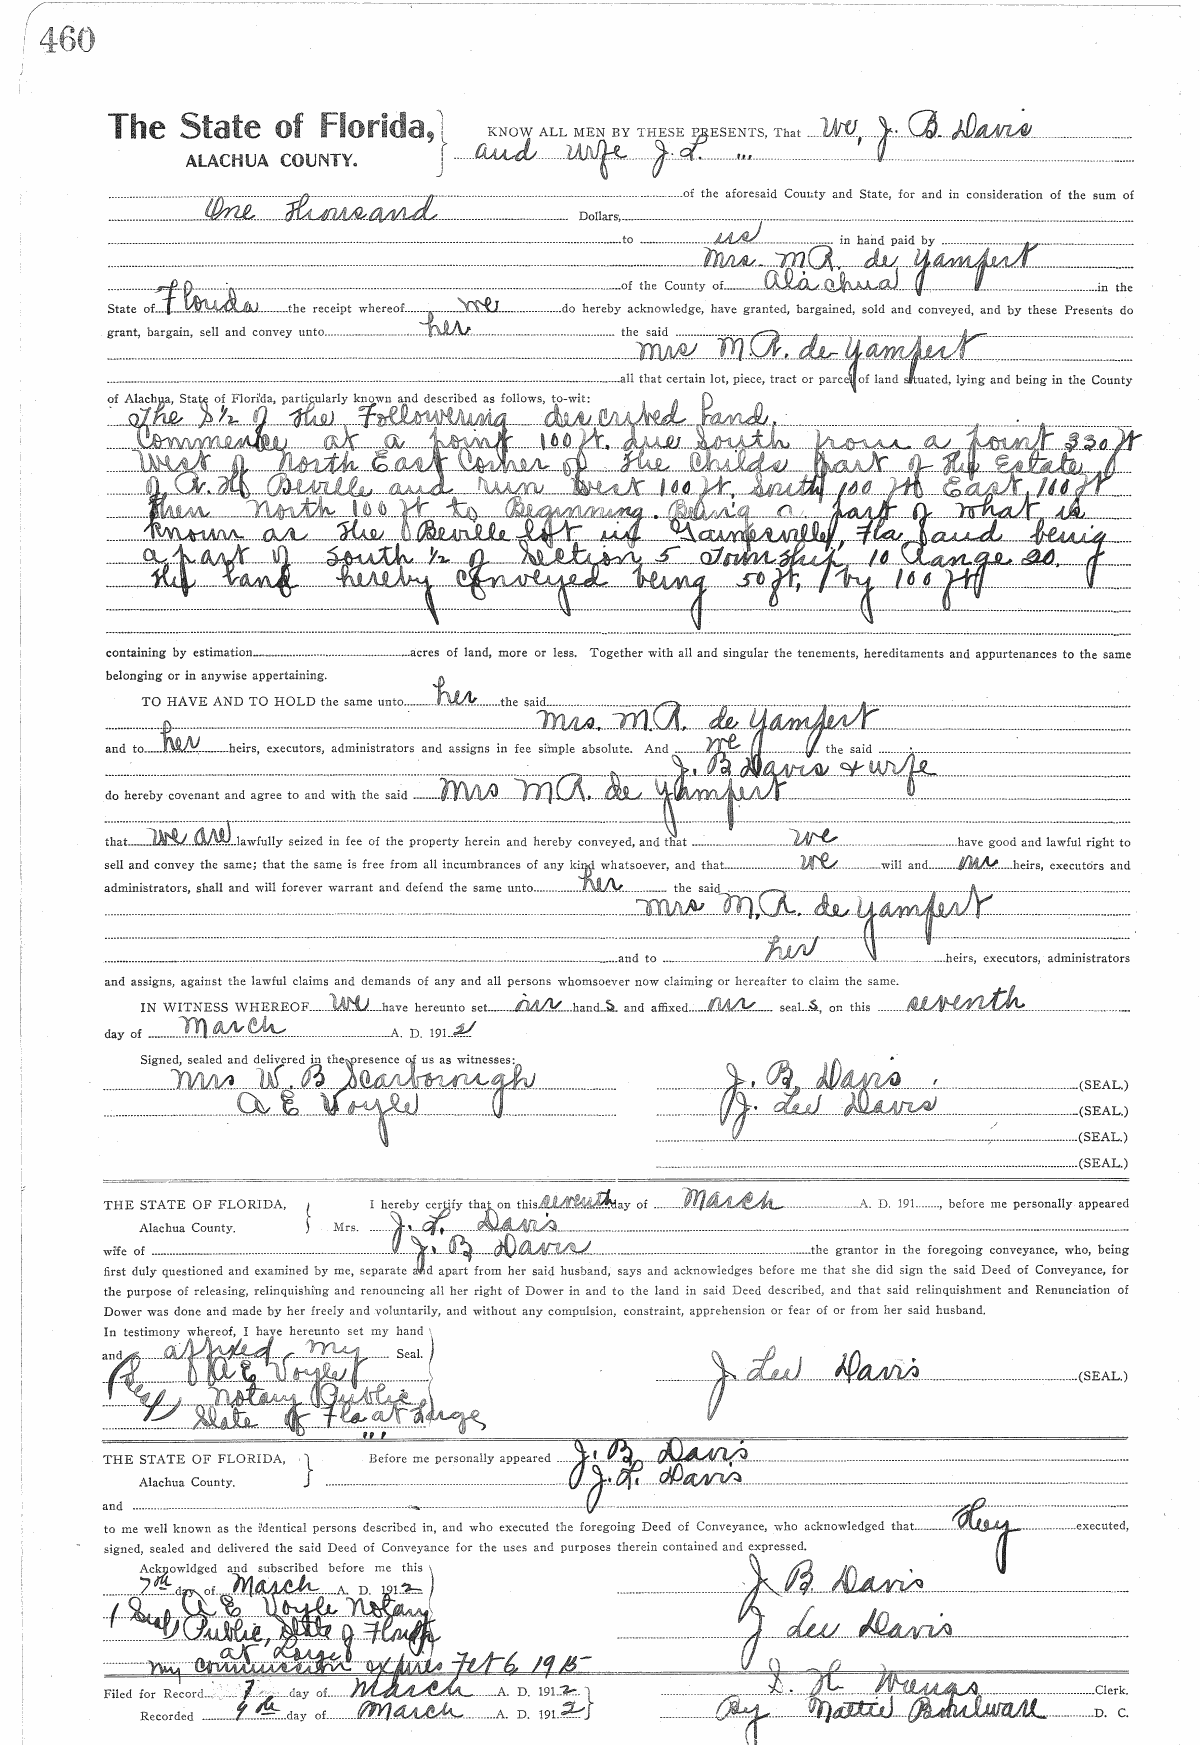 460
The State of Florida,
ALACHUA COUNTY.
KNOW ALL MEN BY THESE PRESENTS, That We, J. B. Davis
and wife J. L. "
of the aforesaid County and State, for and in consideration of the sum of
One Thousand Dollars,
to us in hand paid by
Mrs. M R. de Yampert
of the County of Alachua in the
State of Florida the receipt whereof we do hereby acknowledge, have granted, bargained, sold and conveyed, and by these Presents do
grant, bargain, sell and convey unto her the said
Mrs M.R. de Yampert
all that certain lot, piece, tract or parcel of land situated, lying and being in the County
of Alachua, State of Florida, particularly known and described as follows, to-wit:
The S½ of the Followering described Land.
Commence at a point 100 ft. due South from a point 330 ft
West of North East Corner of the Childs part of the Estate
of R. H. Beville and run West 100 ft. South 100 ft East 100 ft
then North 100 ft to Beginning. Being a part of what is
known as the Beville lot in Gainesville, Fla and being
a part of South ½ of Section 5 Township 10 Range 20.
the land hereby conveyed being 50 ft. by 100 ft
containing by estimation acres of land, more or less. Together with all and singular the tenements, hereditaments and appurtenances to the same
belonging or in anywise appertaining.
TO HAVE AND TO HOLD the same unto her the said
Mrs. M.R. de Yampert
and to her heirs, executors, administrators and assigns in fee simple absolute. And we the said
J. B Davis & wife
do hereby covenant and agree to and with the said Mrs M R. de Yampert
that we are lawfully seized in fee of the property herein and hereby conveyed, and that we have good and lawful right to
sell and convey the same; that the same is free from all incumbrances of any kind whatsoever, and that we will and our heirs, executors and
administrators, shall and will forever warrant and defend the same unto her the said
Mrs M.R. de Yampert
and to her heirs, executors, administrators
and assigns, against the lawful claims and demands of any and all persons whomsoever now claiming or hereafter to claim the same.
IN WITNESS WHEREOF we have hereunto set our hand s and affixed our seal s, on this seventh
day of March A. D. 191 2
Signed, sealed and delivered in the presence of us as witnesses:
Mrs W. B Scarborough J. B. Davis (SEAL.)
A E Voyle J. Lee Davis (SEAL.)
(SEAL.)
(SEAL.)
THE STATE OF FLORIDA, I hereby certify that on this seventh day of March A. D. 191 , before me personally appeared
Alachua County. Mrs. J. L. Davis
wife of J. B Davis the grantor in the foregoing conveyance, who, being
first duly questioned and examined by me, separate and apart from her said husband, says and acknowledges before me that she did sign the said Deed of Conveyance, for
the purpose of releasing, relinquishing and renouncing all her right of Dower in and to the land in said Deed described, and that said relinquishment and Renunciation of
Dower was done and made by her freely and voluntarily, and without any compulsion, constraint, apprehension or fear of or from her said husband.
In testimony whereof, I have hereunto set my hand
and affixed my Seal.
(Seal) A E Voyle J Lee Davis (SEAL.)
Notary Public
State of Fla at Large
THE STATE OF FLORIDA, Before me personally appeared J. B. Davis
Alachua County. J. L. Davis
and
to me well known as the identical persons described in, and who executed the foregoing Deed of Conveyance, who acknowledged that they executed,
signed, sealed and delivered the said Deed of Conveyance for the uses and purposes therein contained and expressed.
Acknowldged and subscribed before me this
7th day of March A. D. 191 2 J B. Davis
(Seal) A E Voyle Notary
Public, State of Florida J Lee Davis
at Large
My commission expires Feb 6, 1915
Filed for Record 7 day of March A. D. 191 2 S. H. Wienges Clerk.
Recorded 9th day of March A. D. 191 2 By Mattie D. C.